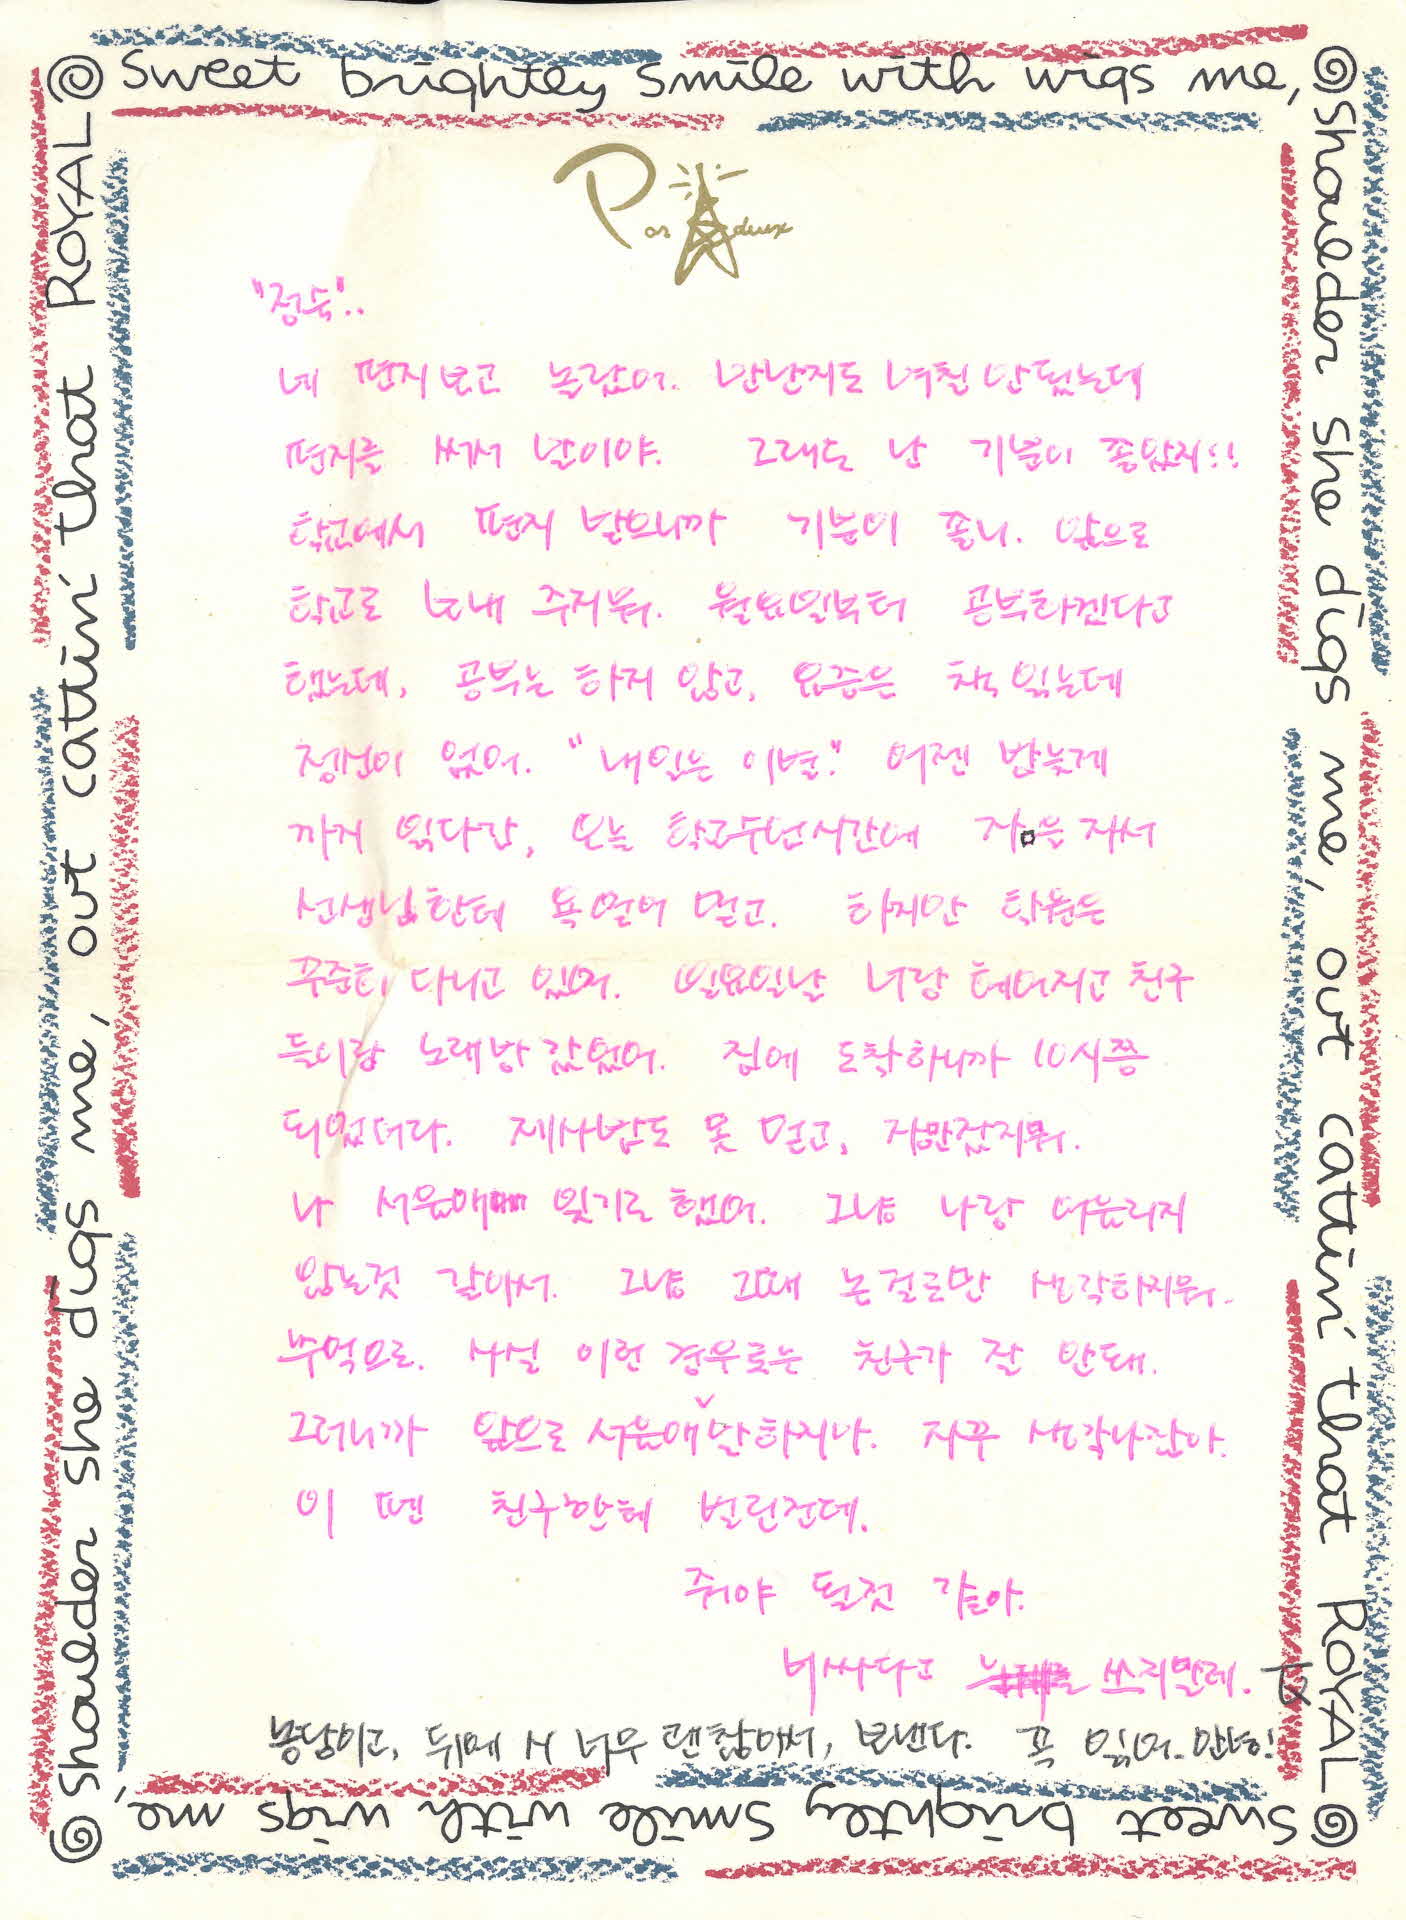 @ Sweet brightly smile with wigs me,
@ Shoulder she digs me, out cattin' that ROYAL
Par deux
"정숙"..
네 편지보고 놀랐어. 만난지도 며칠 안됐는데
편지를 써서 말이야. 그래도 난 기분이 좋았지!!
학교에서 편지 받으니까 기분이 좋니. 앞으로
학교로 보내 주지뭐. 월요일부터 공부하겠다고
했는데, 공부는 하지 않고, 요즘은 책 읽는데
정신이 없어. "내일은 이별". 어젠 밤늦게
까지 읽다가, 오늘 학교수업시간에 자믄 자서
선생님한테 욕먹어 먹고. 하지만 학원은
꾸준히 다니고 있어. 일요일날 너랑 헤어지고 친구
들이랑 노래방 갔었어. 집에 도착하니까 10시쯤
되었더라. 제사밥도 못 먹고, 자만갔지뭐.
나 서울애 잊기로 했어. 그냥 나랑 어울리지
않는것 같아서. 그냥 그때 논걸로만 생각하지뭐.
추억으로. 사실 이런 경우로는 친구가 잘 안돼.
그러니까 앞으로 서울애 말하지마. 자꾸 생각나잖아.
이 펜 친구한테 빌린건데.
줘야 될것 같아.
비싸다고 쓰지말래.
몽당이고, 뒤에 시 너무 괜찮아서, 보낸다. 꼭 읽어. 안녕!
@ Shoulder she digs me, out cattin' that ROYAL
@ Sweet brightly smile with wigs me,